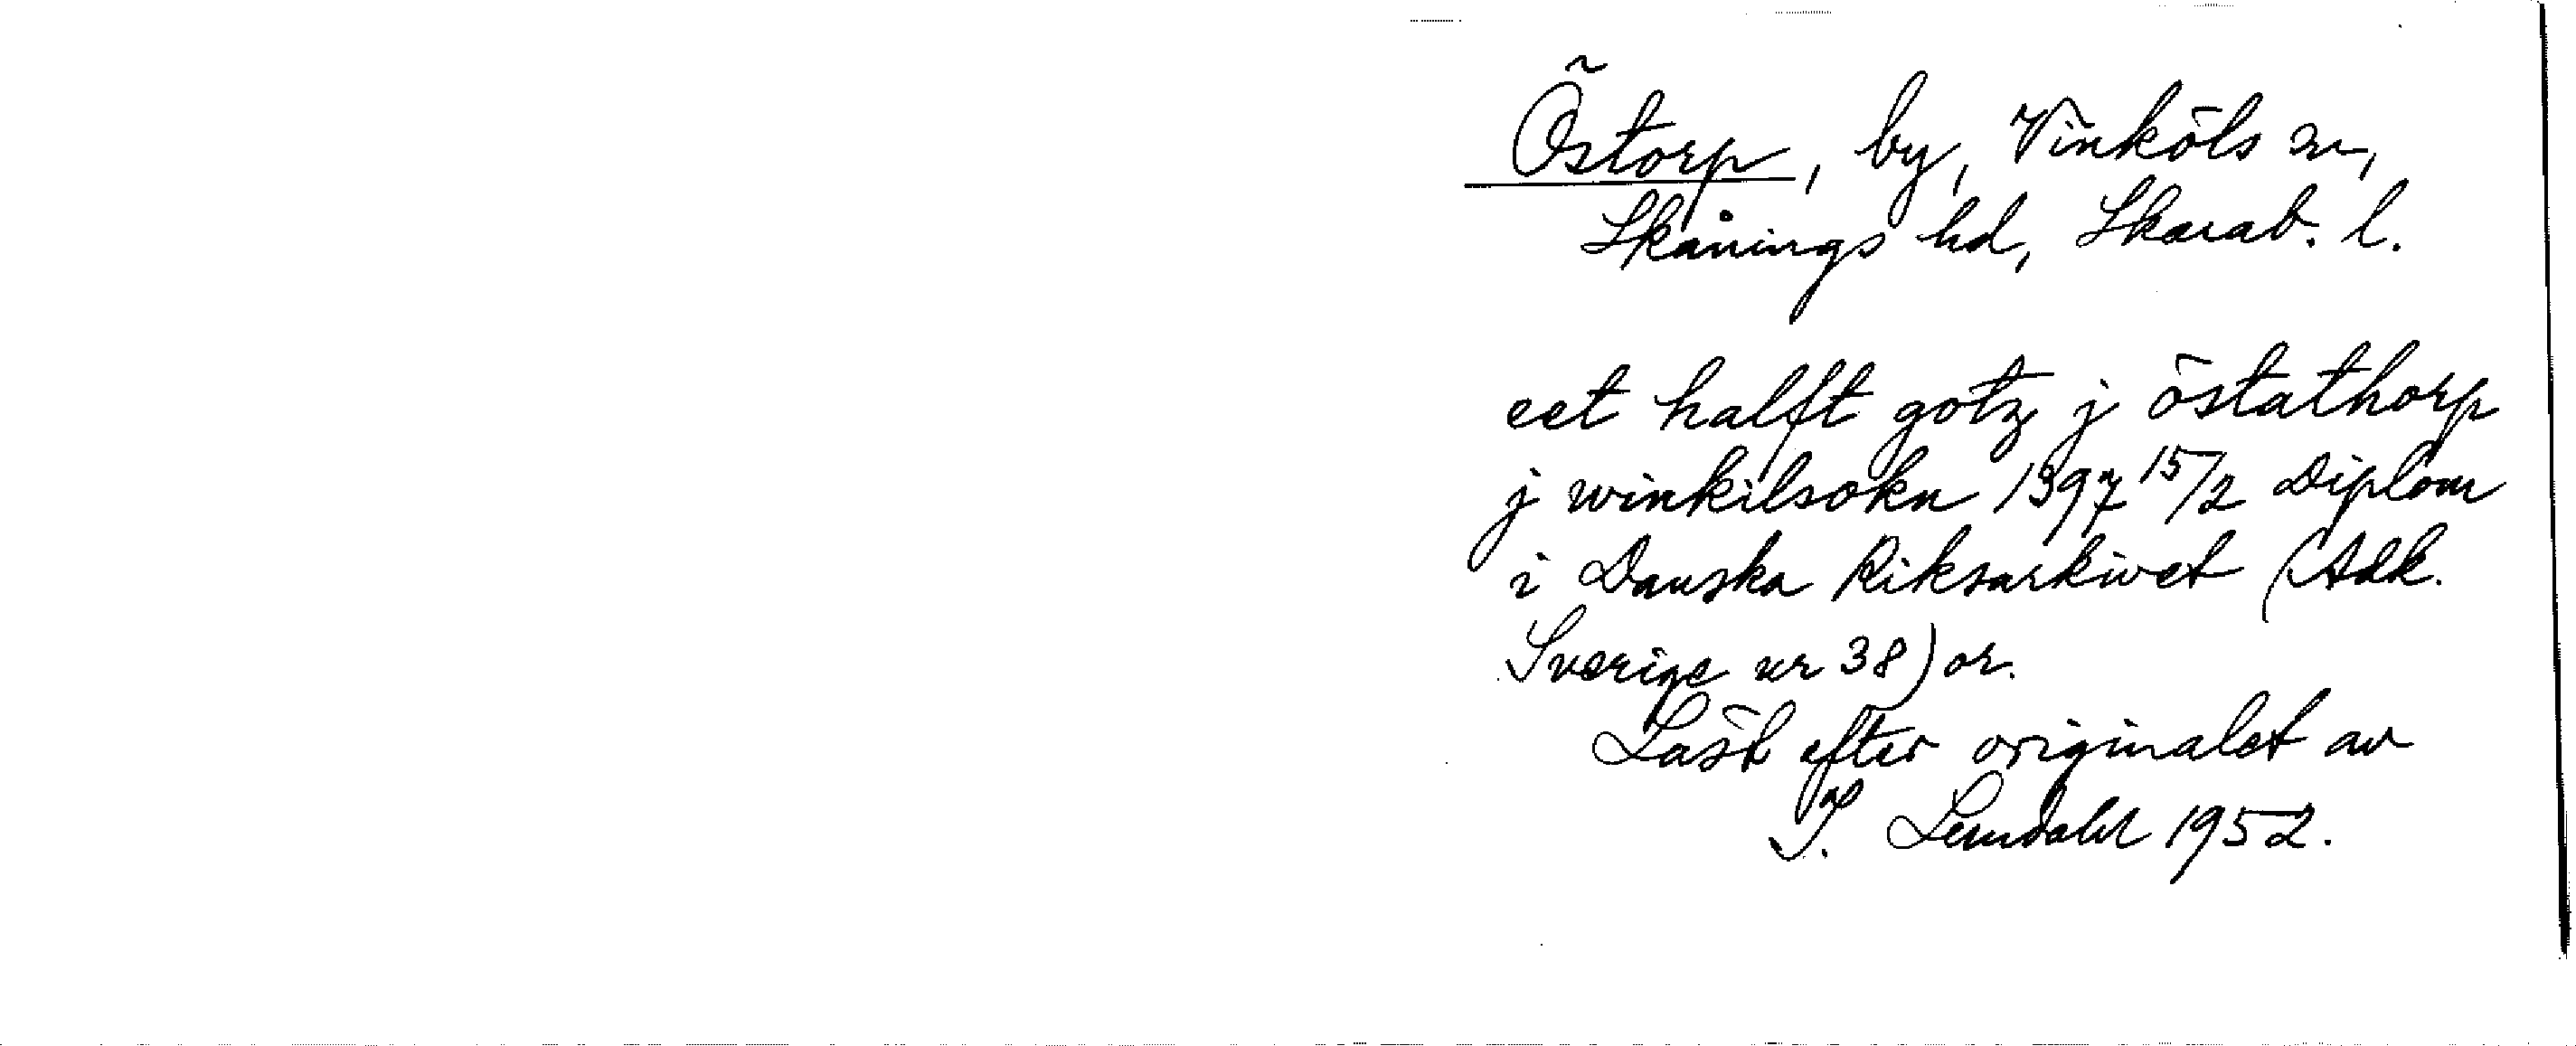 Östorp, by, Vinköls sn,
Skånings hd, Skarab. l.
eet halft gotz j östathorp
j winkilsokn 1397 15/2 Diplom
i Danska Riksarkivet (Adk.
Sverige nr 38) or.
Läst efter originalet av
I. Lemdahl 1952.